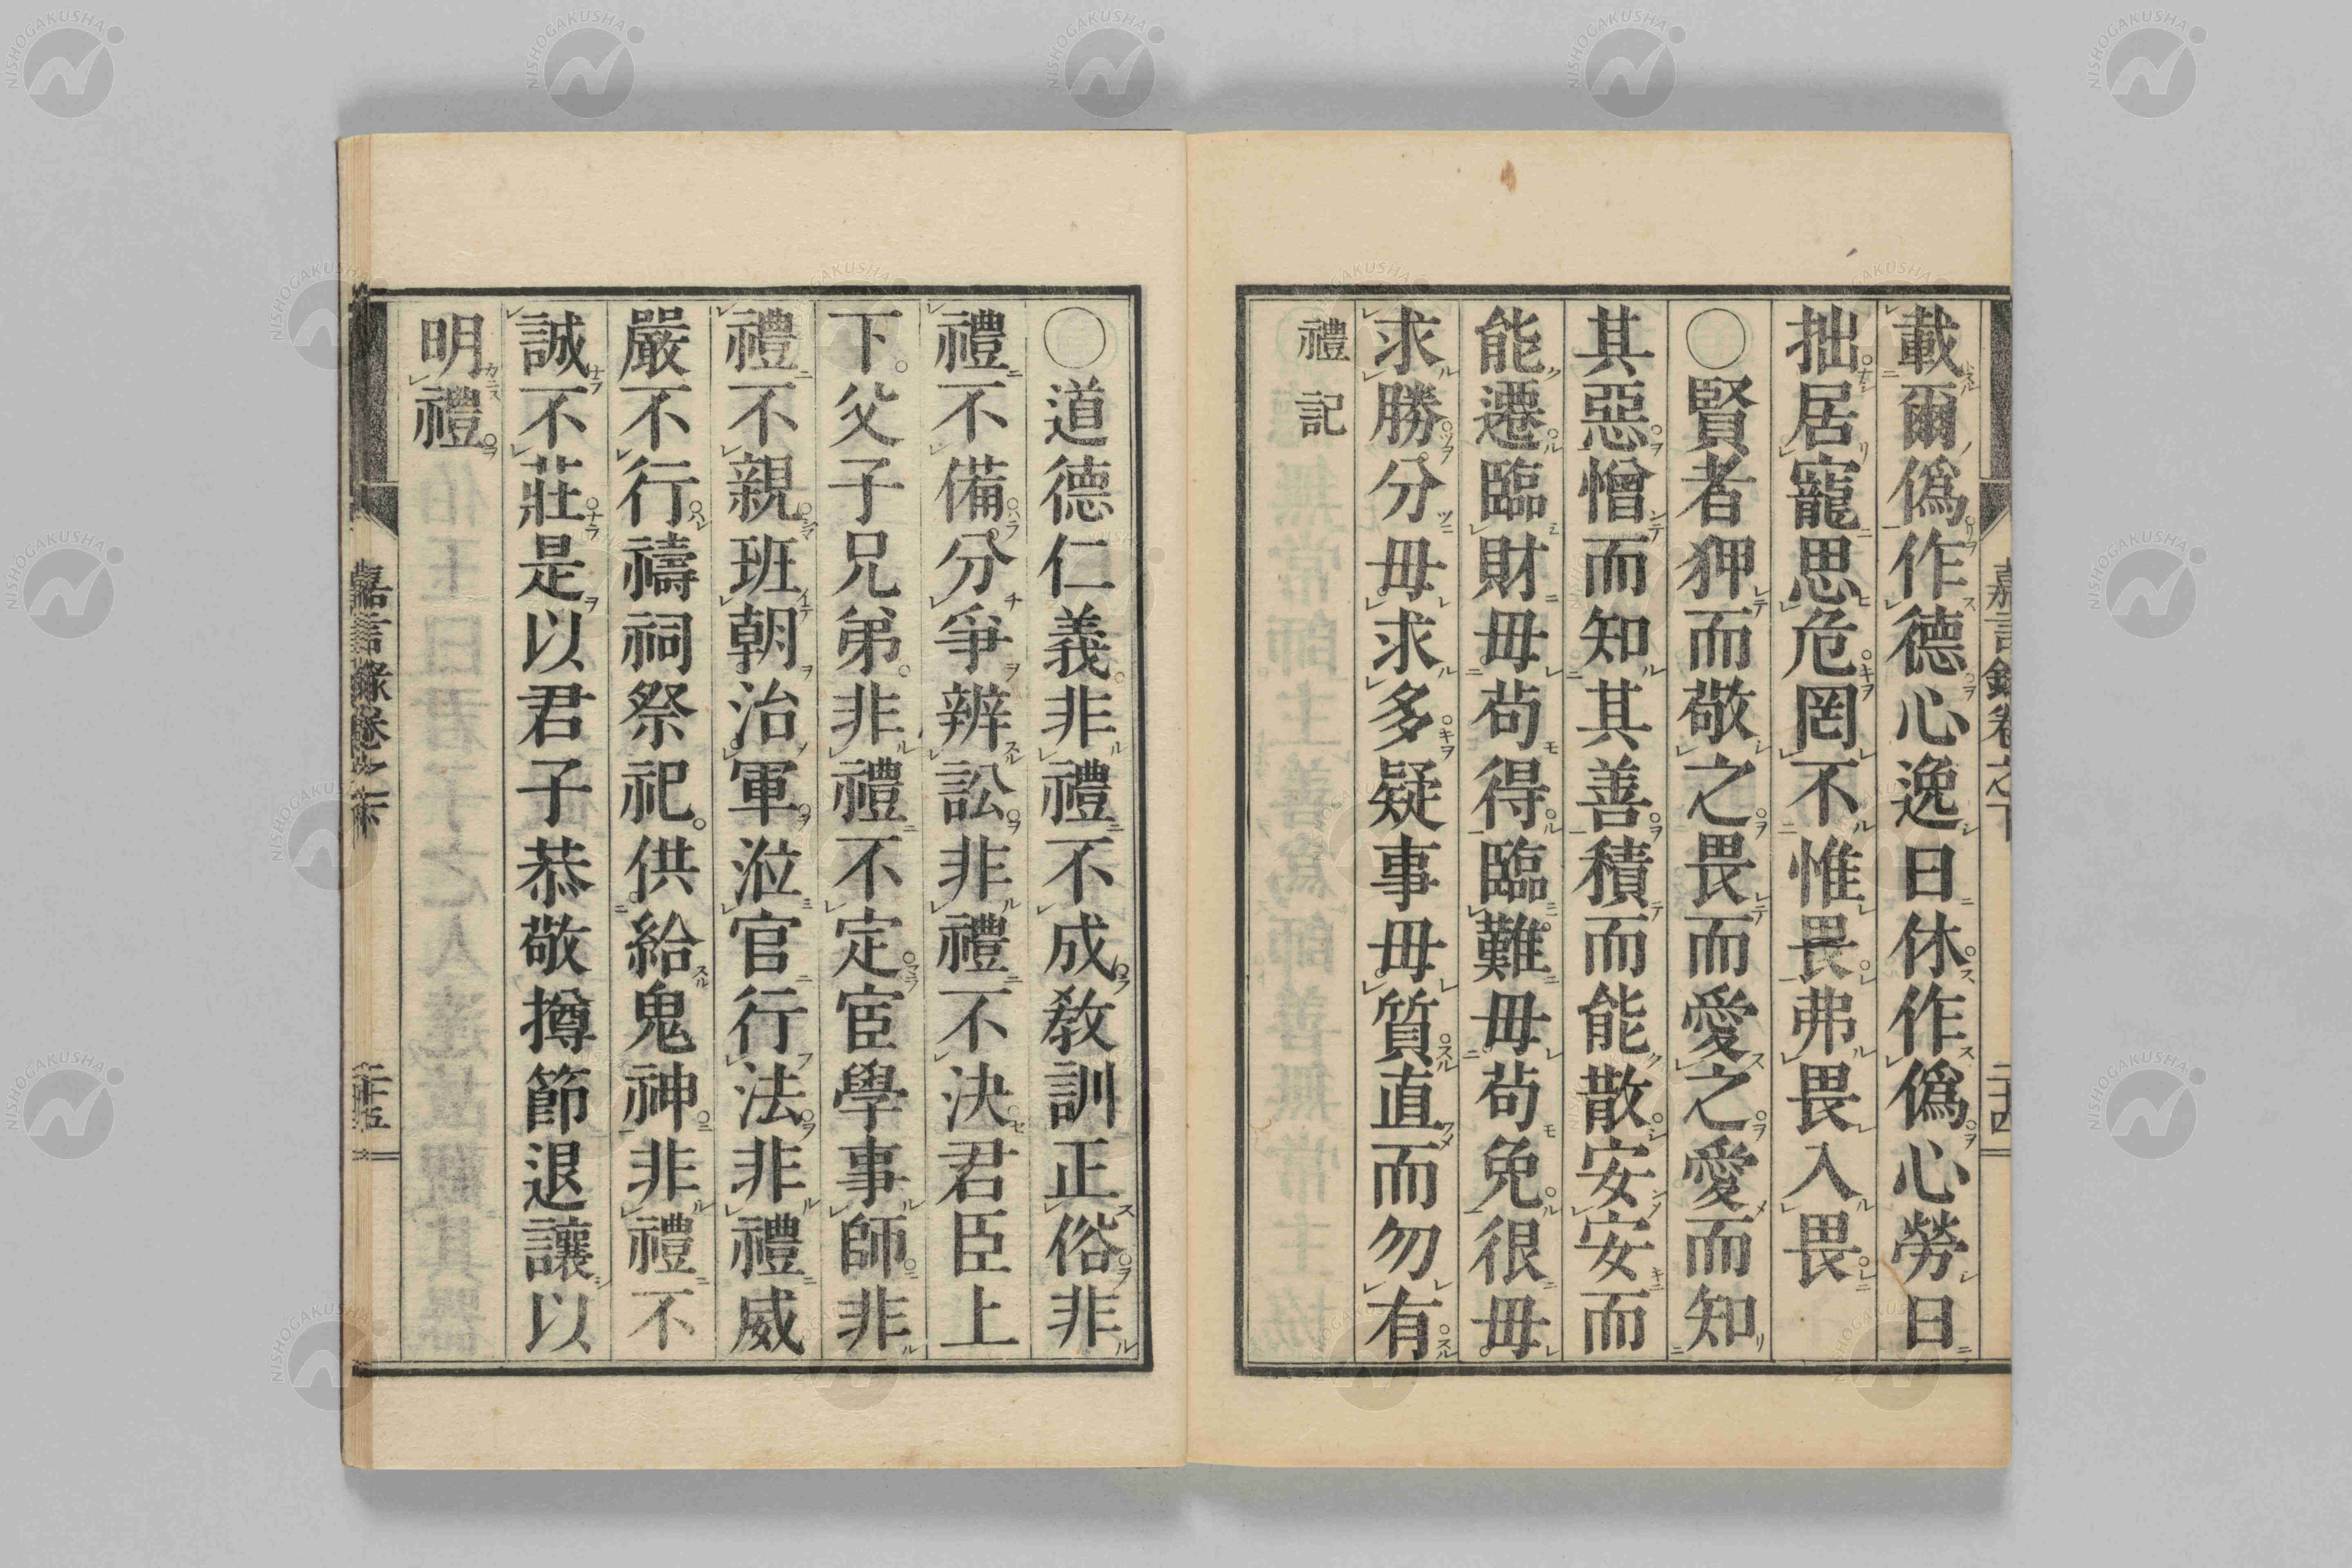 載爾僞作德心逸日休作僞心勞日
拙居寵思危罔不惟畏弗畏入畏
〇賢者狎而敬之畏而愛之愛而知
其惡憎而知其善積而能散安安而
能遷臨財毋苟得臨難毋苟免很毋
求勝分毋求多疑事毋質直而勿有
禮記
嘉言錄卷之下
二十四
〇道德仁義非禮不成敎訓正俗非
禮不備分爭辨訟非禮不決君臣上
下父子兄弟非禮不定宦學事師非
禮不親班朝治軍涖官行法非禮威
嚴不行禱祠祭祀供給鬼神非禮不
誠不莊是以君子恭敬撙節退讓以
明禮
嘉言錄卷之下
二十五
NISHOGAKUSHA